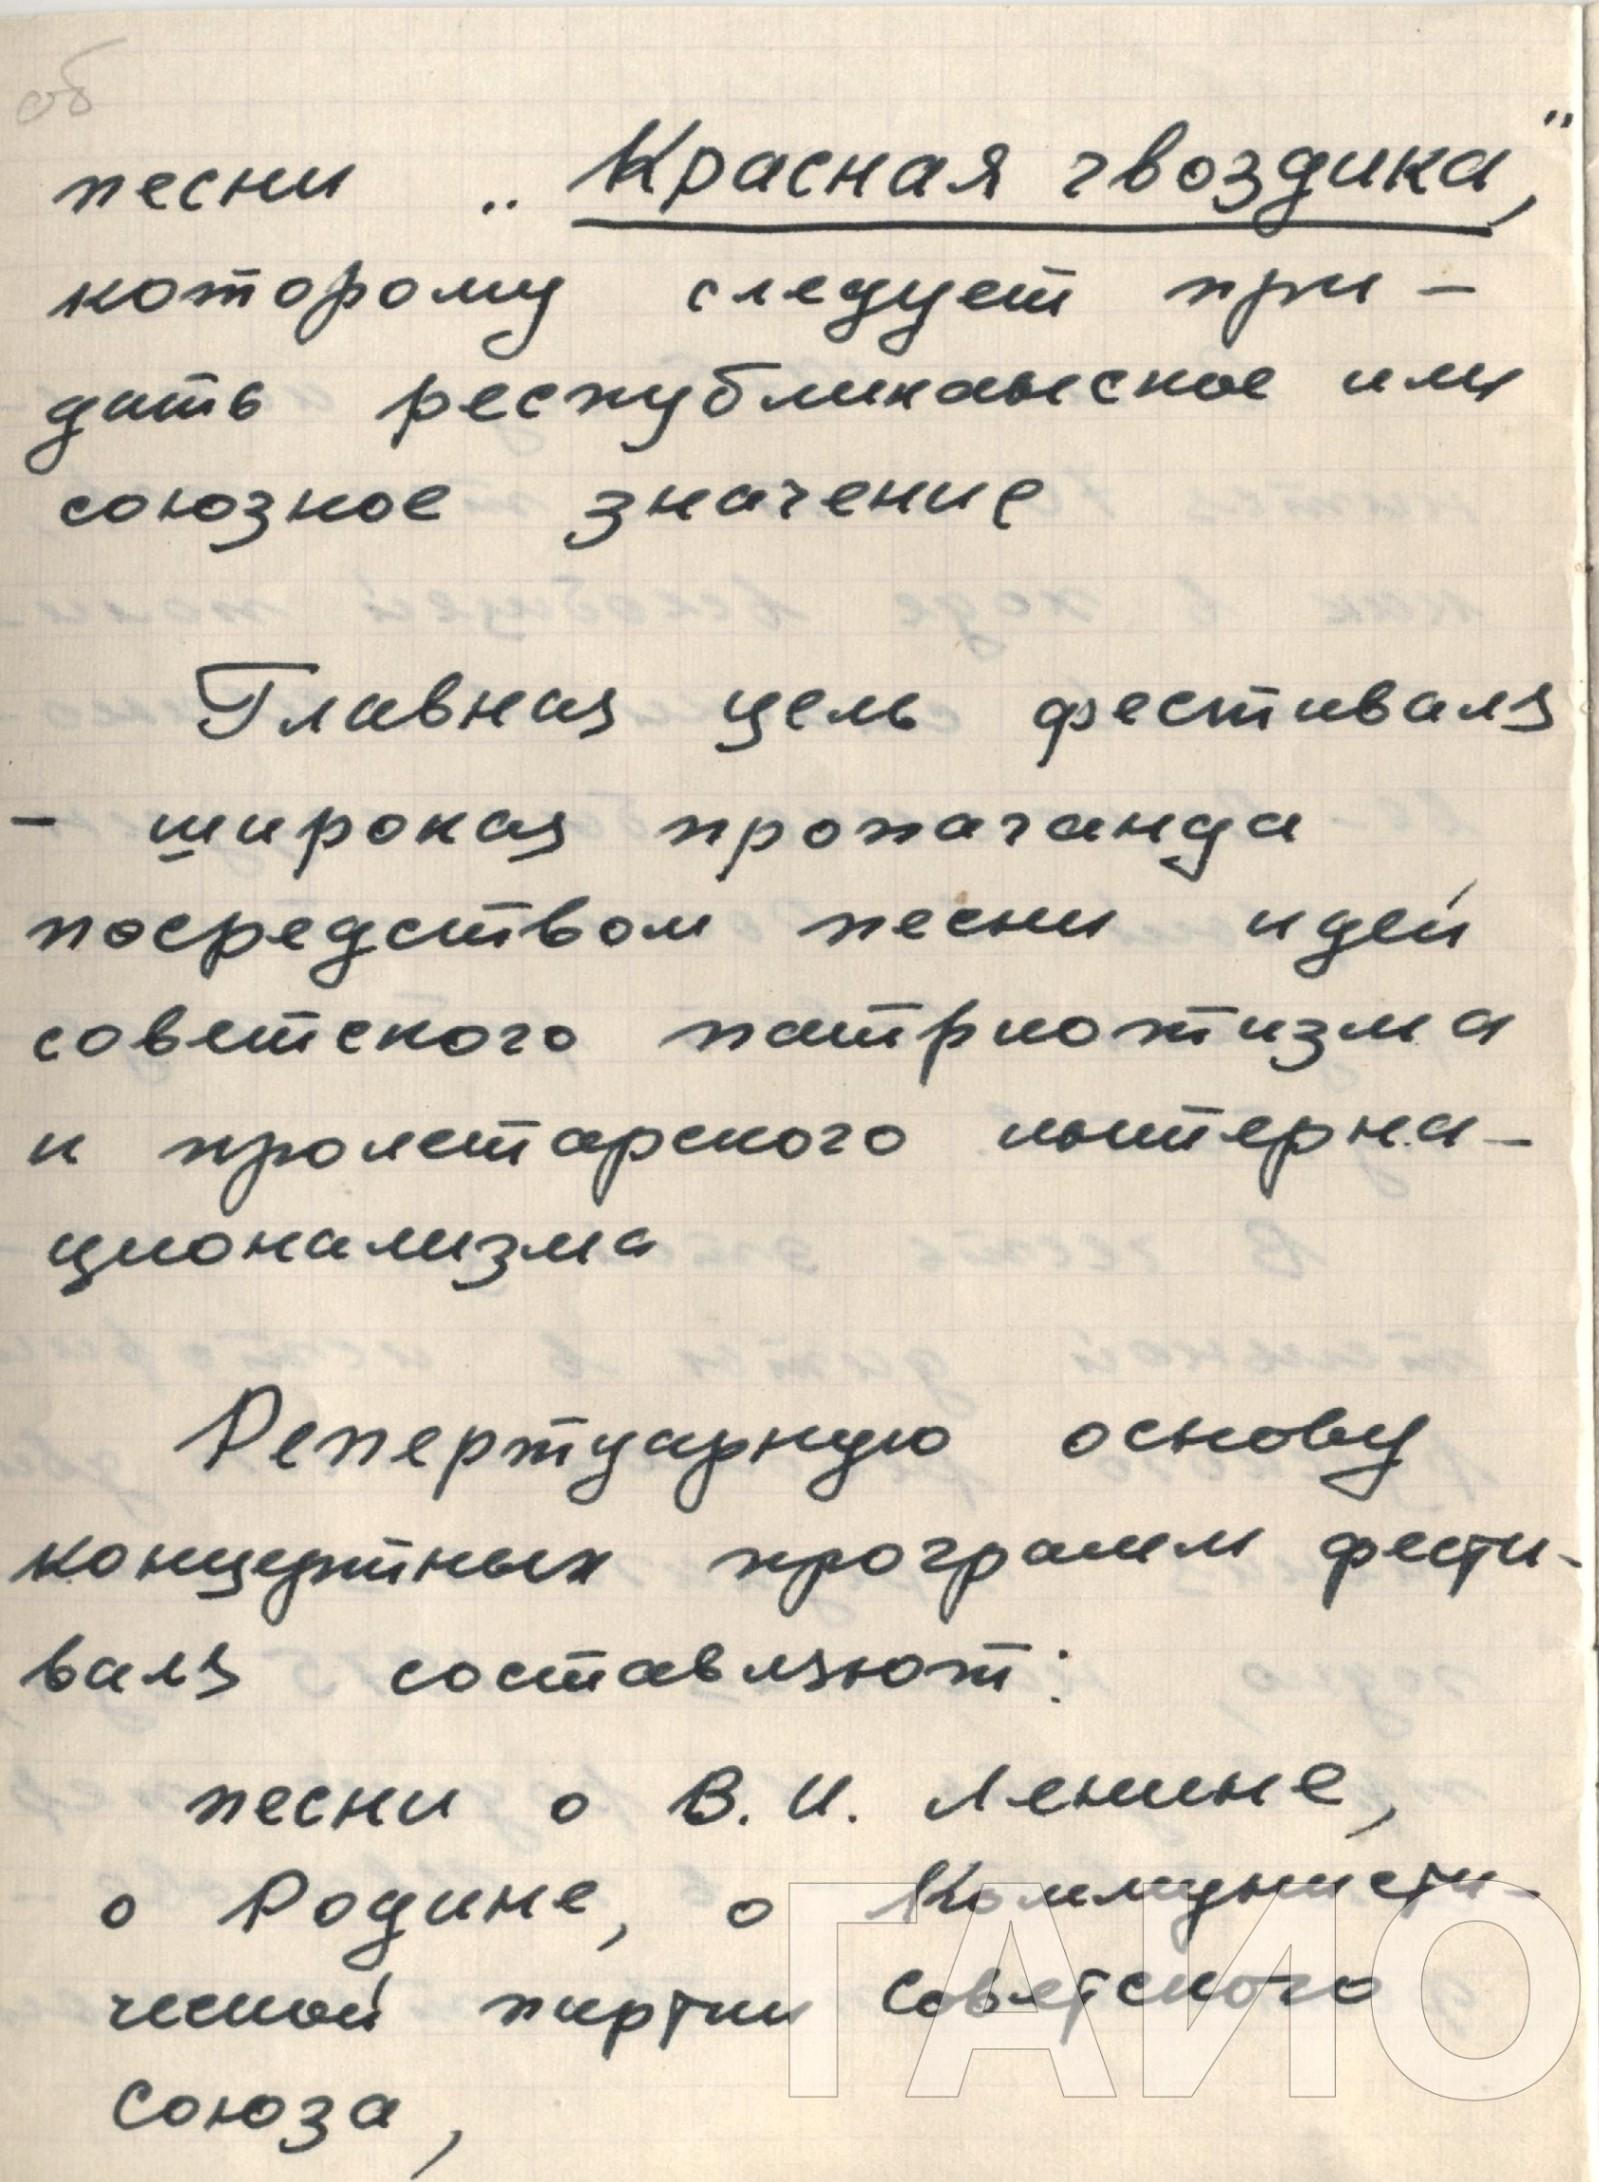 об
песни „Красная гвоздика,"
которому следует при-
дать республиканское или
союзное значение
Главная цель фестиваля
- широкая пропаганда
посредством песни идей
советского патриотизма
и пролетарского интерна-
ционализма
Репертуарную основу
концертных программ фести-
валя составляют:
песни о В. И. Ленине,
о Родине, о Коммунисти-
ческой партии Советского
Союза,
ГАИО